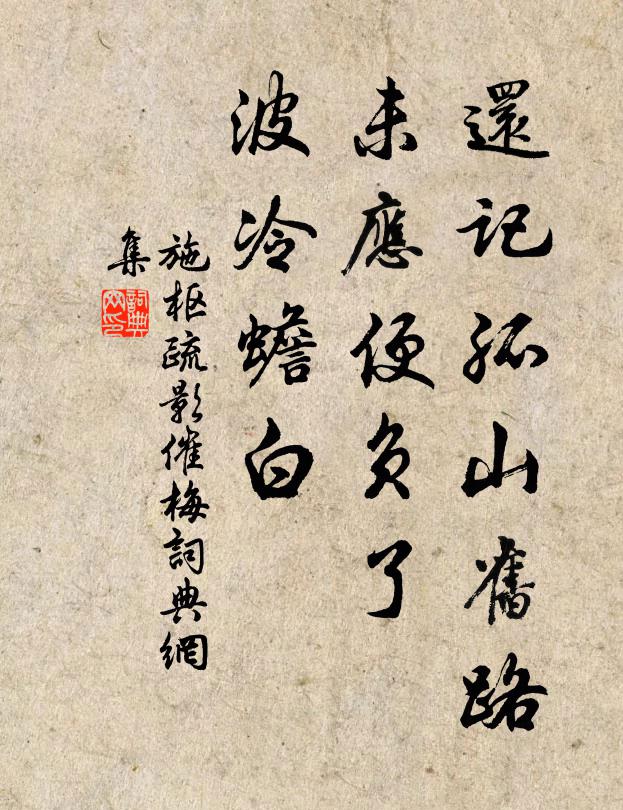 還記孤山舊路
未應便負了
波冷蟾白
施樞疏影催梅詞典網
集
詞典
网印